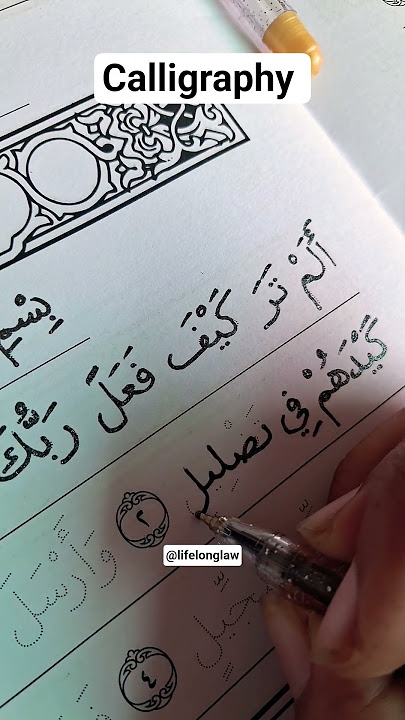 Calligraphy
بِسْمِ
أَلَمْ تَرَ كَيْفَ فَعَلَ رَبُّكَ
كَيْدَهُمْ فِي تَضْلِيلٍ ٢ وَأَرْسَلَ
@lifelonglaw
٤